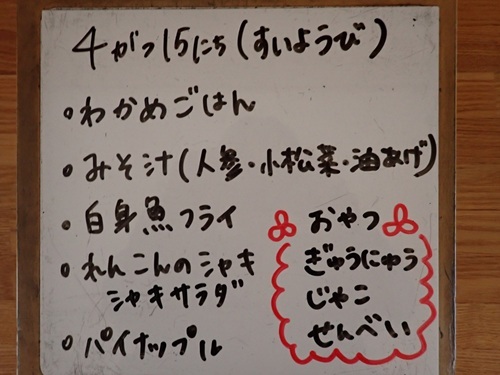 4がつ15にち(すいようび)
・わかめごはん
・みそ汁(人参・小松菜・油あげ)
・白身魚フライ
・れんこんのシャキ
シャキサラダ
・パイナップル
おやつ
ぎゅうにゅう
じゃこ
せんべい